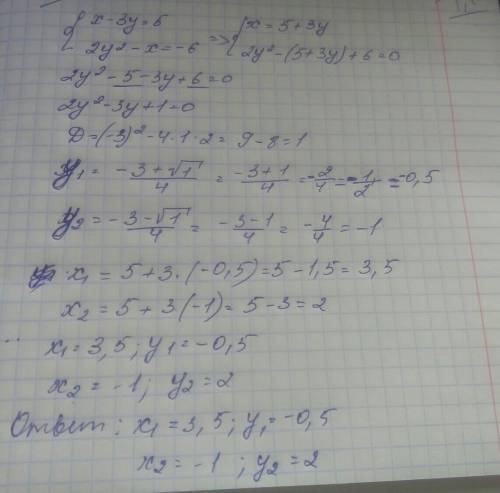 { x-3y=5 => { x=5+3y
2y²-x=-6 2y²-(5+3y)+6=0
2y²-5-3y+6=0
2y²-3y+1=0
D=(-3)²-4·1·2=9-8=1
y₁= -3+√1/4 = -3+1/4 = -2/4 = -1/2 = -0,5
y₂= -3-√1/4 = -3-1/4 = -4/4 = -1
x₁ = 5+3·(-0,5)=5-1,5=3,5
x₂ = 5+3(-1)=5-3=2
x₁=3,5; y₁=-0,5
x₂=-1; y₂=2
Ответ: x₁=3,5; y₁=-0,5
x₂=-1; y₂=2